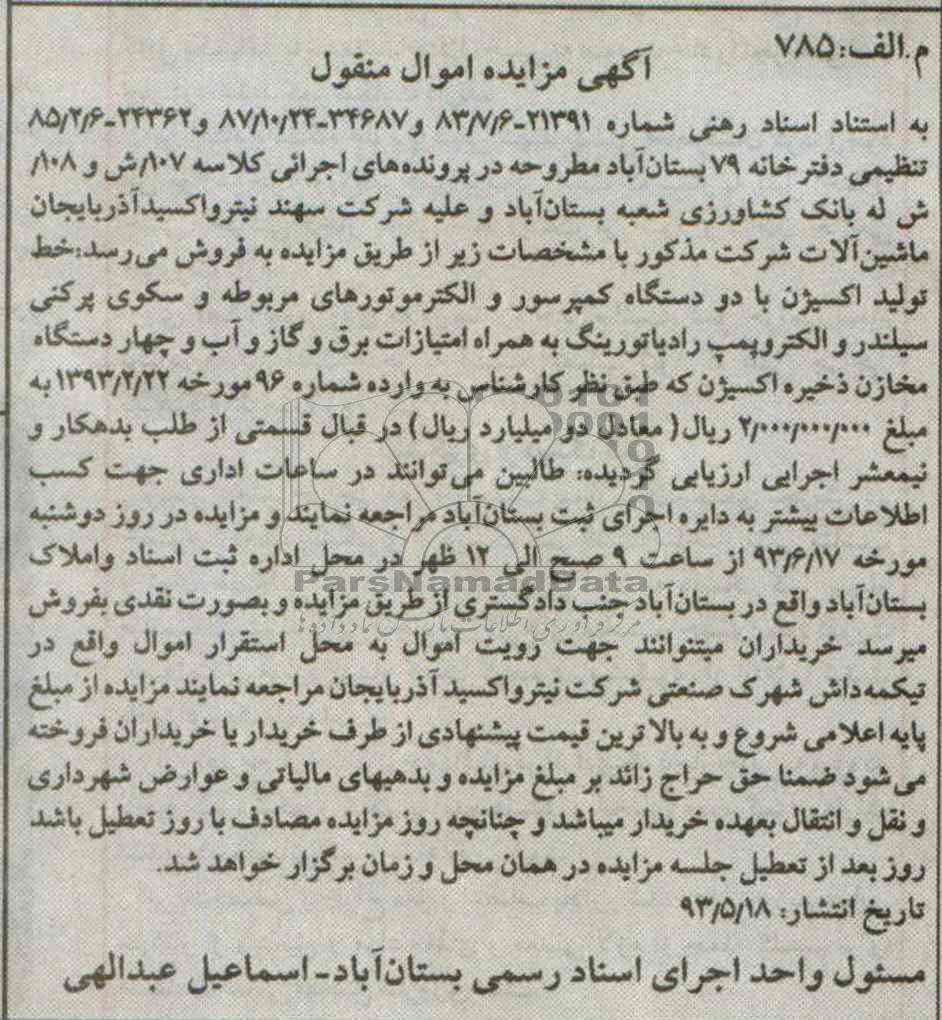 م.الف: ۷۸۵
آگهی مزایده اموال منقول
به استناد اسناد رهنی شماره ۲۱۳۹۱-۸۳/۷/۶ و۳۴۶۸۷-۸۷/۱۰/۲۴ و۲۴۳۶۲-۸۵/۲/۶
تنظیمی دفترخانه ۷۹ بستان‌آباد مطروحه در پرونده‌های اجرائی کلاسه ۱۰۷/ش و ۱۰۸/
ش له بانک کشاورزی شعبه بستان‌آباد و علیه شرکت سهند نیترواکسیدآذربایجان
ماشین‌آلات شرکت مذکور با مشخصات زیر از طریق مزایده به فروش می‌رسد:خط
تولید اکسیژن با دو دستگاه کمپرسور و الکتروموتورهای مربوطه و سکوی پرکنی
سیلندر و الکتروپمپ رادیاتورینگ به همراه امتیازات برق و گاز و آب و چهار دستگاه
مخازن ذخیره اکسیژن که طبق نظر کارشناس به وارده شماره ۹۶ مورخه ۱۳۹۳/۲/۲۲ به
مبلغ ۲/۰۰۰/۰۰۰/۰۰۰ ریال( معادل دو میلیارد ریال) در قبال قسمتی از طلب بدهکار و
نیمعشر اجرایی ارزیابی گردیده: طالبین می‌توانند در ساعات اداری جهت کسب
اطلاعات بیشتر به دایره اجرای ثبت بستان‌آباد مراجعه نمایند و مزایده در روز دوشنبه
مورخه ۹۳/۶/۱۷ از ساعت ۹ صبح الی ۱۲ ظهر در محل اداره ثبت اسناد واملاک
ParsNamadData
بستان‌آباد واقع در بستان‌آباد جنب دادگستری از طریق مزایده و بصورت نقدی بفروش
میرسد خریداران میتنوانند جهت رویت اموال به محل استقرار اموال واقع در
تیکمه‌داش شهرک صنعتی شرکت نیترواکسید آذربایجان مراجعه نمایند مزایده از مبلغ
پایه اعلامی شروع و به بالاترین قیمت پیشنهادی از طرف خریدار یا خریداران فروخته
می‌شود ضمنا حق حراج زائد بر مبلغ مزایده و بدهیهای مالیاتی و عوارض شهرداری
و نقل و انتقال بعهده خریدار میباشد و چنانچه روز مزایده مصادف با روز تعطیل باشد
روز بعد از تعطیل جلسه مزایده در همان محل و زمان برگزار خواهد شد.
تاریخ انتشار: ۹۳/۵/۱۸
مسئول واحد اجرای اسناد رسمی بستان‌آباد-اسماعیل عبدالهی